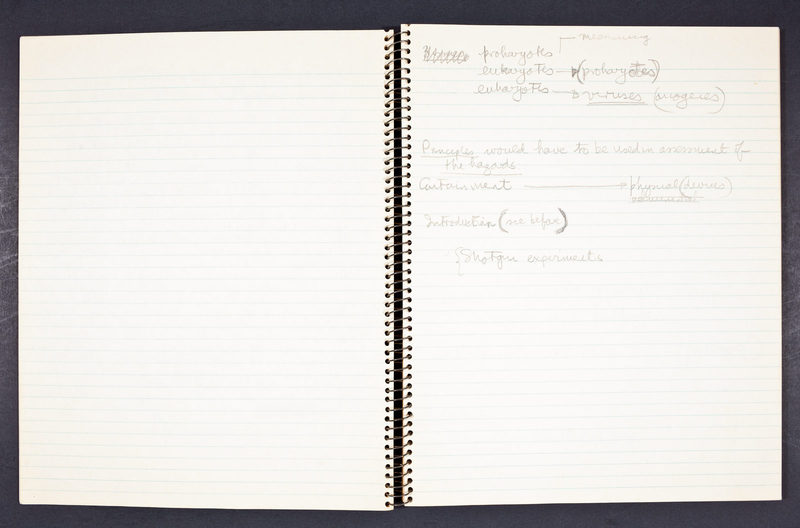 meaning
prokaryotes
eukaryotes → (prokaryotes)
eukaryotes → viruses (oncogenes)
Principles would have to be used in assessment of
the hazards
Containment → physical (devices)
Introduction (see before)
{Shotgun experiments